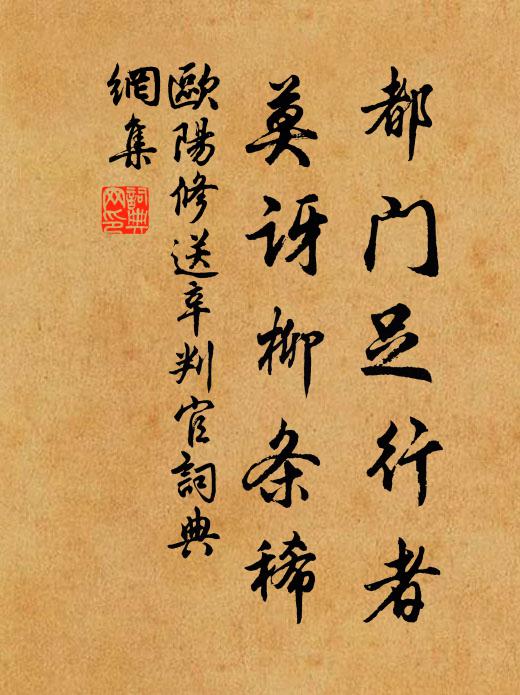 都门足行者
莫讶柳条稀
歐陽修送辛判官詞典
網集
詞典
網印